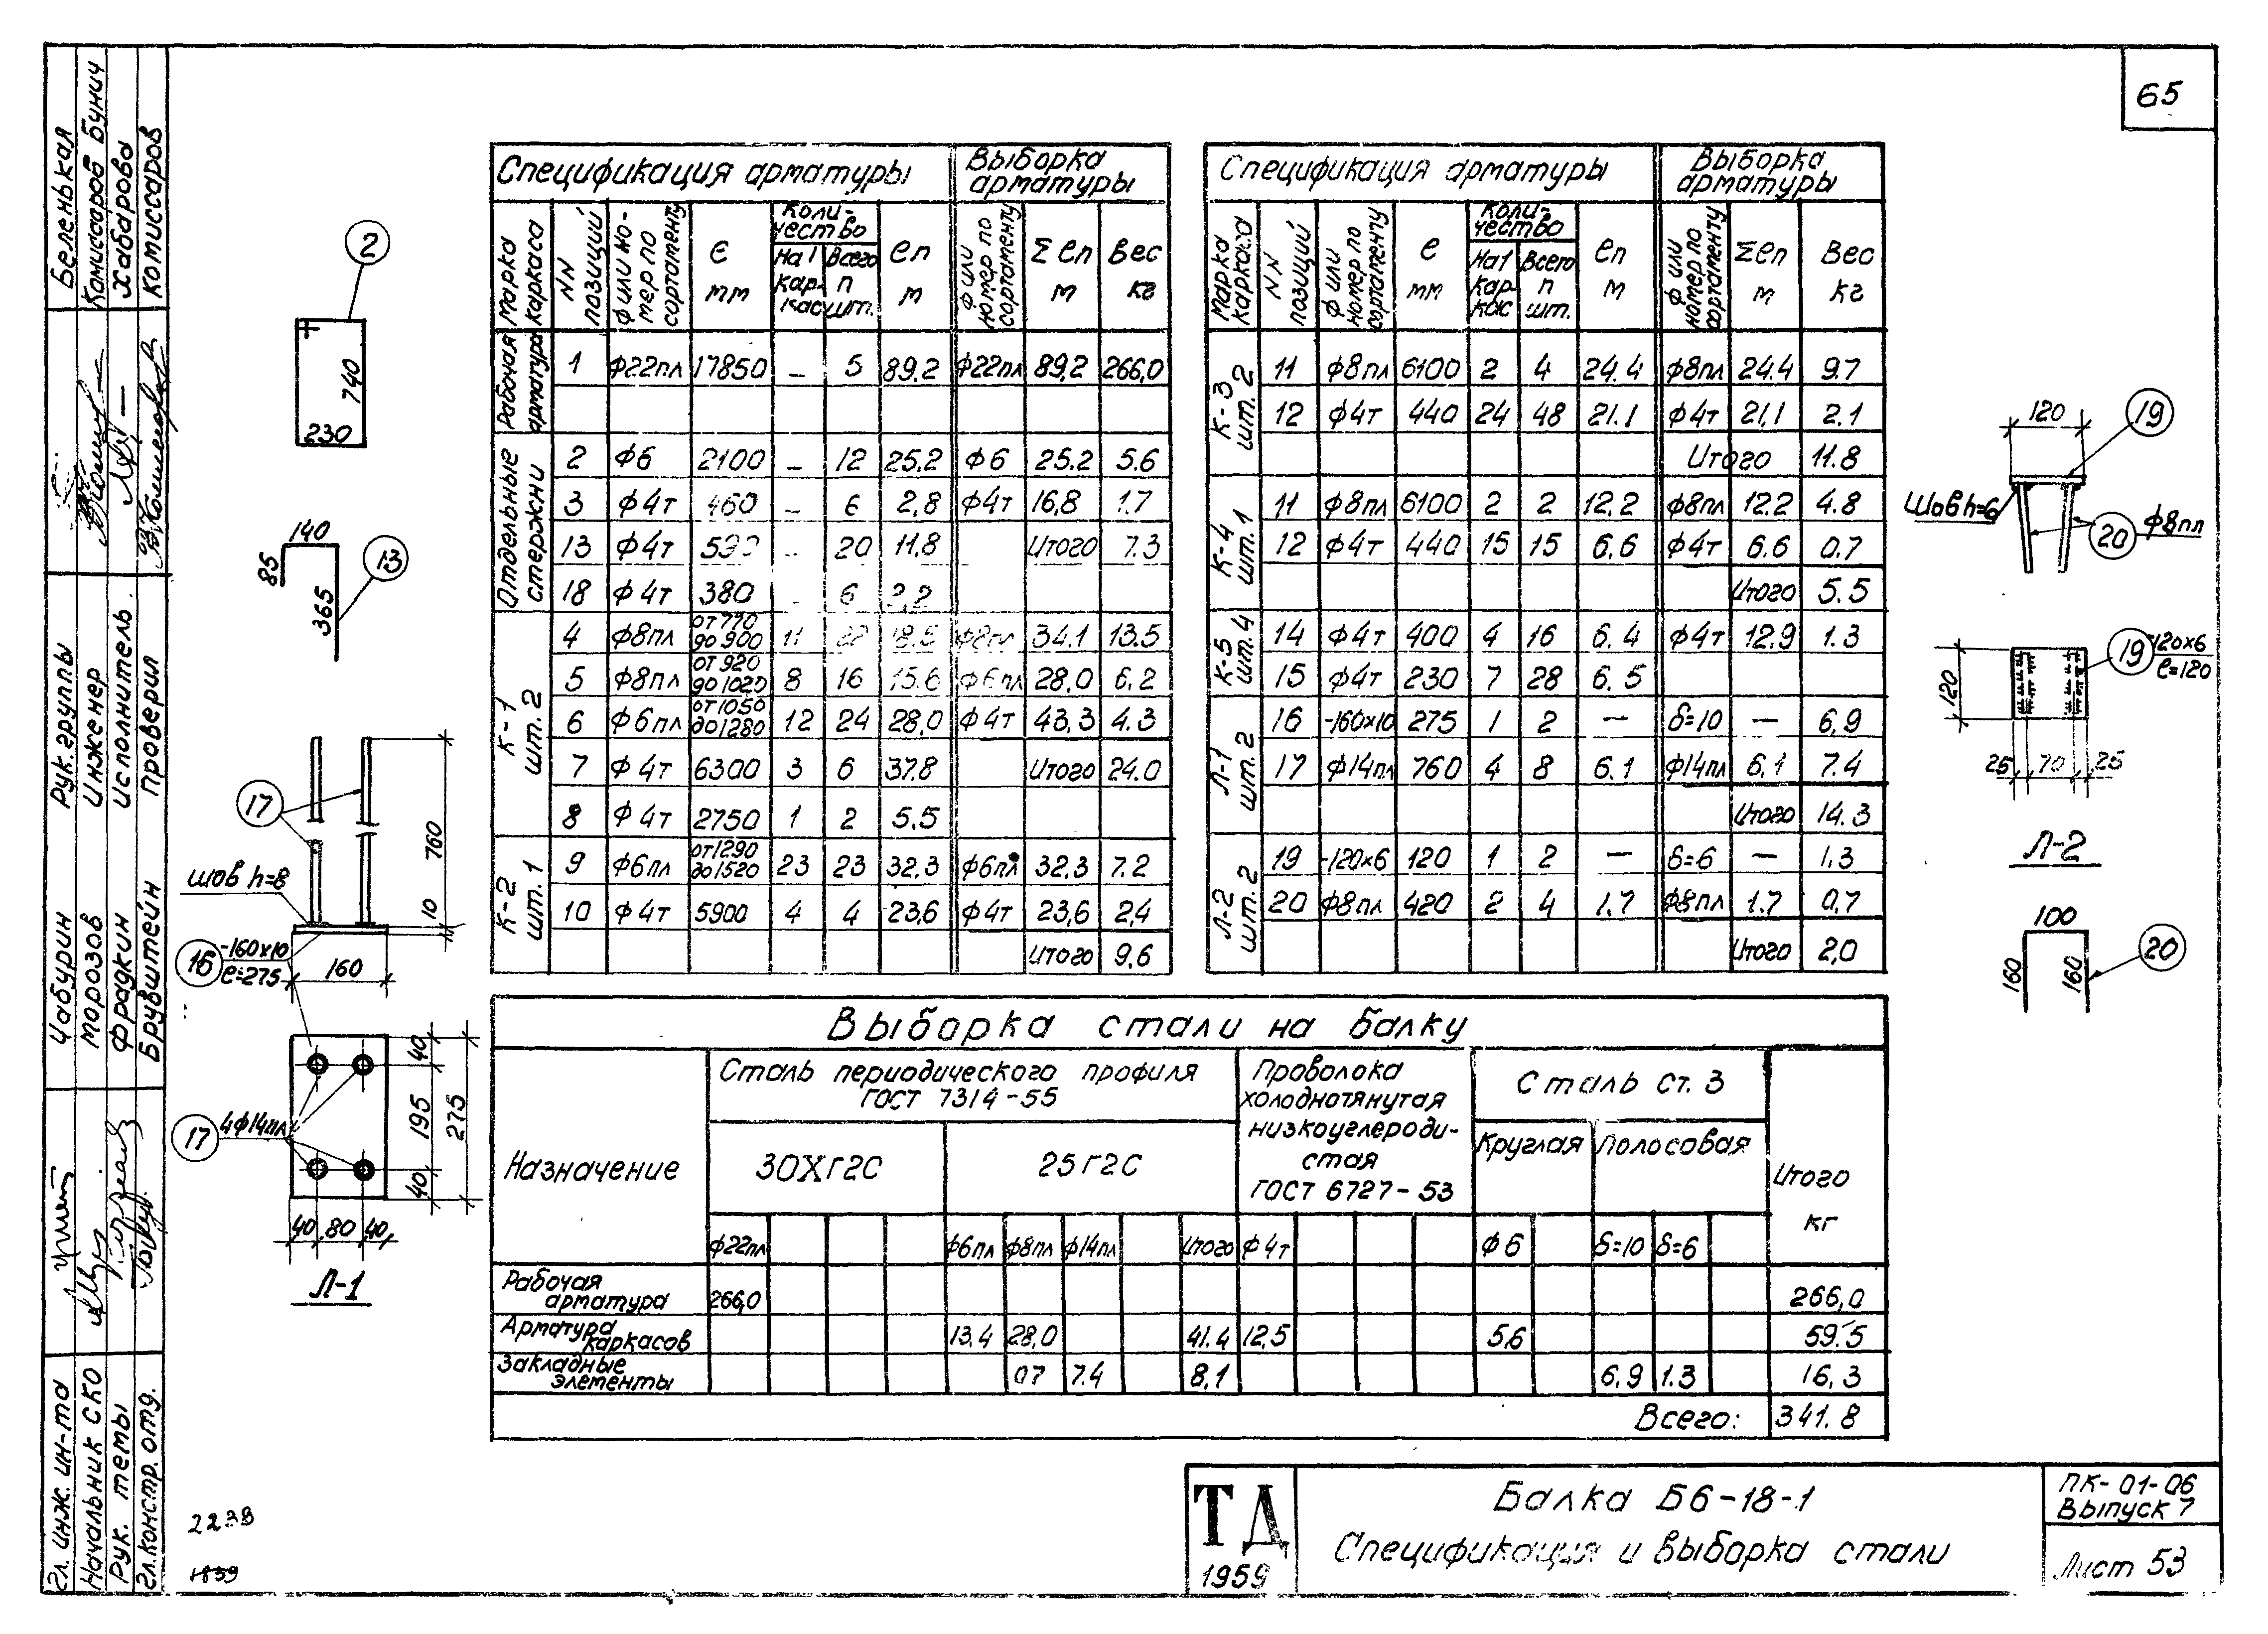 65
Спецификация арматуры Выборка арматуры
Марка каркаса NN позиций ф или номер по сортаменту е мм Количество На 1 каркас Всего п шт. еп м ф или номер по сортаменту Σ еп м Вес кг
Рабочая арматура 1 ф22пл 17850 – 5 89,2 ф22пл 89,2 266,0
Отдельные стержни 2 ф6 2100 – 12 25.2 ф6 25.2 5.6
3 ф4т 460 – 6 2,8 ф4т 16,8 1.7
13 ф4т 590 – 20 11,8 Итого 7.3
18 ф4т 380 6 2,2
К-1 шт. 2 4 ф8пл от 770 до 900 11 22 18.5 ф8пл 34.1 13.5
5 ф8пл от 920 до 1020 8 16 15.6 ф6пл 28.0 6.2
6 ф6пл от 1050 до 1280 12 24 28,0 ф4т 43,3 4.3
7 ф4т 6300 3 6 37.8 Итого 24.0
8 ф4т 2750 1 2 5.5
К-2 шт. 1 9 ф6пл от 1290 до 1520 23 23 32.3 ф6пл 32.3 7.2
10 ф4т 5900 4 4 23,6 ф4т 23,6 2,4
Итого 9,6
Спецификация арматуры Выборка арматуры
Марка каркаса NN позиций ф или номер по сортаменту е мм Количество На 1 каркас Всего п шт. еп м ф или номер по сортаменту Σеп м Вес кг
К-3 шт. 2 11 ф8пл 6100 2 4 24.4 ф8пл 24.4 9.7
12 ф4т 440 24 48 21.1 ф4т 21,1 2.1
Итого 11.8
К-4 шт. 1 11 ф8пл 6100 2 2 12.2 ф8пл 12.2 4.8
12 ф4т 440 15 15 6.6 ф4т 6.6 0.7
Итого 5.5
К-5 шт. 4 14 ф4т 400 4 16 6.4 ф4т 12.9 1.3
15 ф4т 230 7 28 6.5
Л-1 шт. 2 16 -160х10 275 1 2 — δ=10 — 6,9
17 ф14пл 760 4 8 6.1 ф14пл 6.1 7.4
Итого 14.3
Л-2 шт. 2 19 -120х6 120 1 2 — δ=6 — 1.3
20 ф8пл 420 2 4 1.7 ф8пл 1.7 0.7
Итого 2,0
Выборка стали на балку
Назначение Сталь периодического профиля ГОСТ 7314-55 Проволока холоднотянутая низкоуглеродистая ГОСТ 6727-53 Сталь ст. 3 Итого кг
30ХГ2С 25Г2С Круглая Полосовая
ф22пл ф6пл ф8пл ф14пл Итого ф4т ф6 δ=10 δ=6
Рабочая арматура 266,0 266,0
Арматура каркасов 13.4 28,0 41.4 12,5 5,6 59.5
Закладные элементы 0.7 7.4 8,1 6,9 1.3 16,3
Всего: 341.8
2
740
230
140
85
365
13
17
760
10
шов h=8
16
-160х10
е=275
160
40
195
275
40
17
4ф14пл
40 80 40
Л-1
120
19
Шов h=6
20
ф8пл
120
19
-120х6
е=120
25 70 25
Л-2
100
160
160
20
ТД
1959
Балка Б6-18-1
Спецификация и выборка стали
ПК-01-06
Выпуск 7
Лист 53
2239
1859
Гл. инж. ин-та Цабурин Рук. группы Беленькая
Начальник СКО Морозов Инженер Комиссаров Бунич
Рук. темы Фрадкин Исполнитель Хабарова
Гл. констр. отд. Брувштейн Проверил Комиссаров